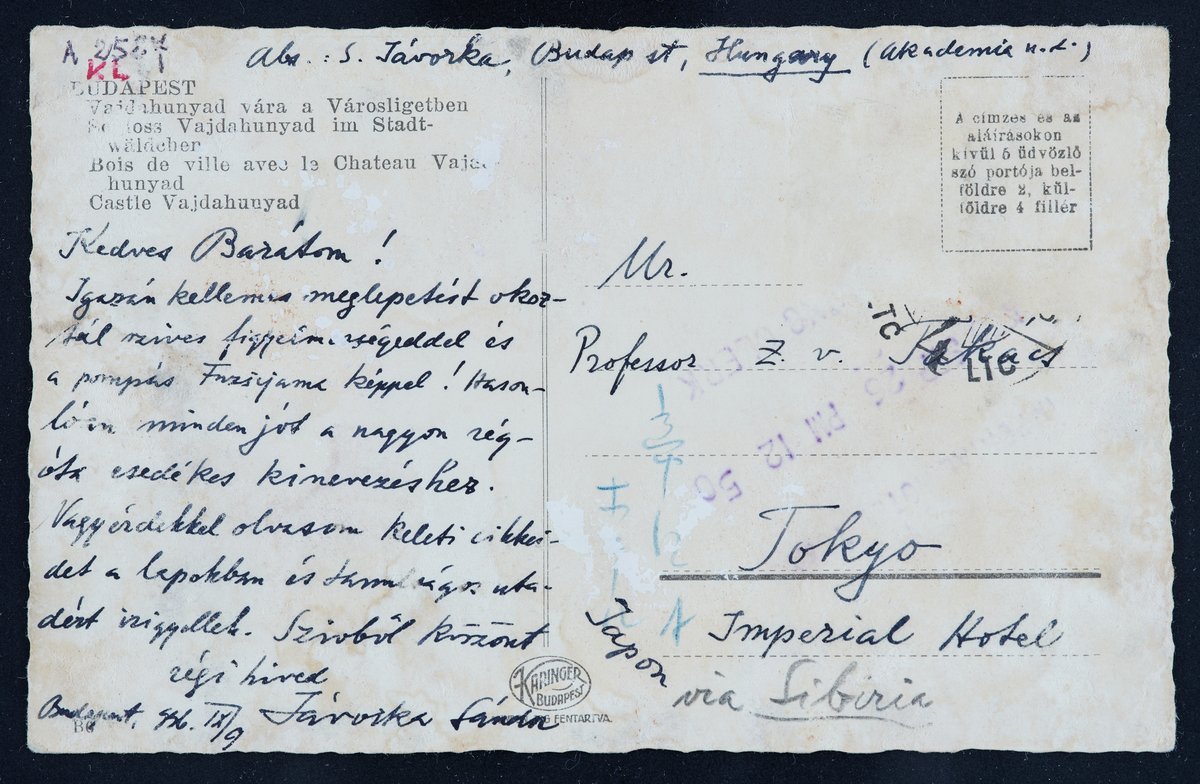 A 2587
KL
Abs.: S. Jávorka, Budapest, Hungary (Akademia u. 2.)
BUDAPEST
Vajdahunyad vára a Városligetben
Schloss Vajdahunyad im Stadt-
wäldcher
Bois de ville avec le Chateau Vajda-
hunyad
Castle Vajdahunyad
A címzés és az
aláírásokon
kívül 5 üdvözlő
szó portója bel-
földre 2, kül-
földre 4 fillér
Kedves Barátom!
Igazán kellemes meglepetést okoz-
tál szives figyelmességeddel és
a pompás Fuzsijama képpel! Hason-
lóan minden jót a nagyon rég-
óta esedékes kinevezéshez.
Nagy érdekkel olvasom keleti cikkei-
det a lapokban és tanulságos uta-
dért irigyellek. Szivből köszönt
régi hived
Budapest, 936. IX/9 Jávorka Sándor
Mr.
Professor Z. v. Takács
Tokyo
Imperial Hotel
Japon
via Sibiria
PM 12 50
LTC
KARINGER
BUDAPEST
FENTARTVA.